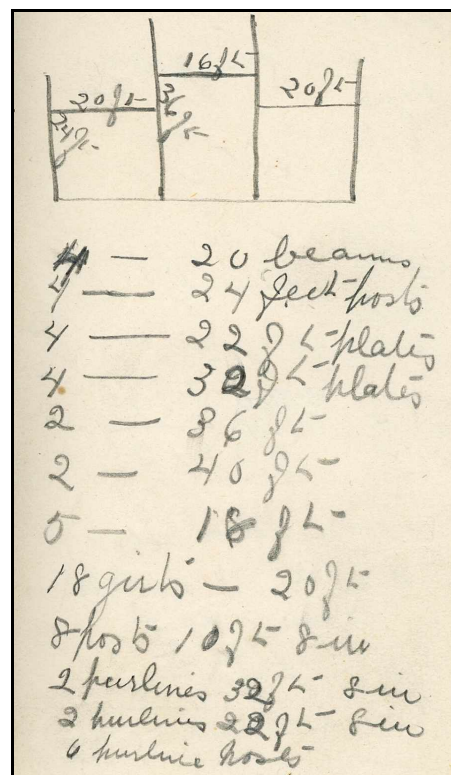 16ft
20ft
36
ft
20ft
24ft
4 — 20 beams
4 — 24 feet posts
4 — 22 ft plates
4 — 32ft plates
2 — 36 ft
2 — 40 ft
5 — 18 ft
18 girts — 20ft
8 posts 10ft 8 in
2 purlines 32ft 8 in
2 purlines 22ft 8 in
6 purline posts